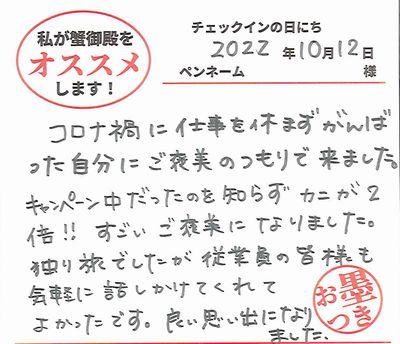 私が蟹御殿を
オススメ
します！
チェックインの日にち
2022 年10月12日
ペンネーム 様
コロナ禍に仕事を休まずがんば
った自分にご褒美のつもりで来ました。
キャンペーン中だったのを知らずカニが2
倍!! すごいご褒美になりました。
独り旅でしたが従業員の皆様も
気軽に話しかけてくれて
よかったです。良い思い出になり
ました、
お墨つき